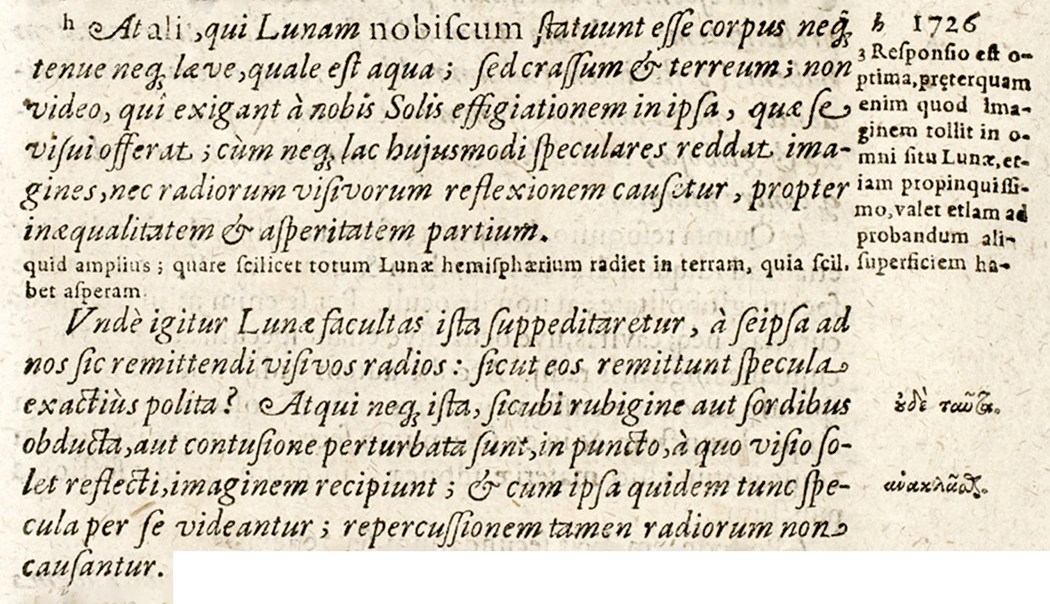 h At alii, qui Lunam nobiſcum ſtatuunt eſſe corpus neq;
tenue neq; læve, quale eſt aqua ; ſed craſſum & terreum ; non
video, qui exigant à nobis Solis effigiationem in ipſa , quæ ſe
viſui offerat ; cùm neq; lac hujusmodi ſpeculares reddat ima-
gines, nec radiorum viſivorum reflexionem cauſetur , propter
inæqualitatem & aſperitatem partium.
h 1726
3 Reſponſio eſt o-
ptima, pręterquam
enim quod Ima-
ginem tollit in o-
mni ſitu Lunæ, et-
iam propinquiſſi-
mo, valet etiam ad
probandum ali-
quid amplius ; quare ſcilicet totum Lunæ hemiſphærium radiet in terram, quia ſcil. ſuperficiem ha-
bet aſperam.
Vndè igitur Lunæ facultas iſta ſuppeditaretur , à ſeipſa ad
nos ſic remittendi viſivos radios : ſicut eos remittunt ſpecula
exactiùs polita ? Atqui neq; iſta, ſicubi rubigine aut ſordibus
obducta, aut contuſione perturbata ſunt, in puncto, à quo viſio ſo-
let reflecti, imaginem recipiunt ; & cum ipſa quidem tunc ſpe-
cula per ſe videantur ; repercuſſionem tamen radiorum non
cauſantur.
ἐδὲ ταῦτα.
ἀνακλᾶσθ.